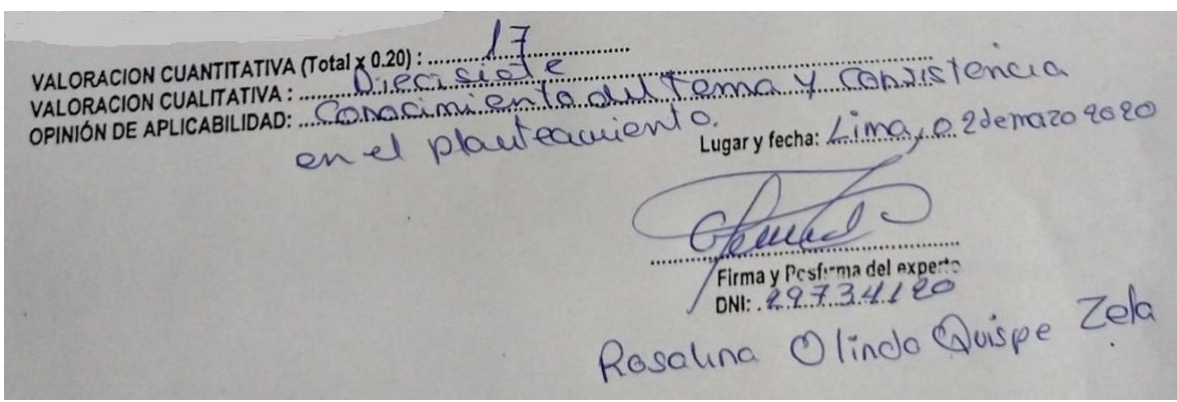 VALORACION CUANTITATIVA (Total x 0.20) : 17
VALORACION CUALITATIVA : Diecisiete
OPINIÓN DE APLICABILIDAD: Conocimiento del tema y consistencia
en el planteamiento.
Lugar y fecha: Lima, 02 de mazo 2020
Firma y Posfirma del experto
DNI: 29734120
Rosalina Olinda Quispe Zela